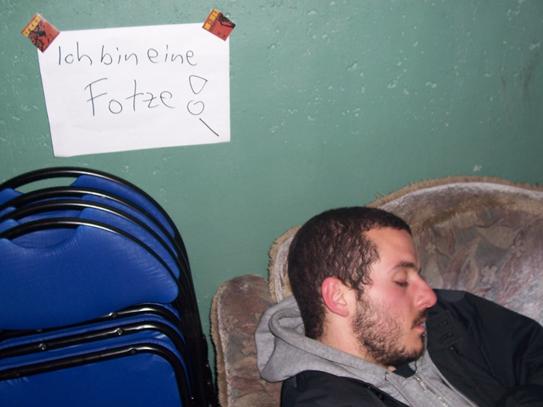 Ich bin eine
Fotze